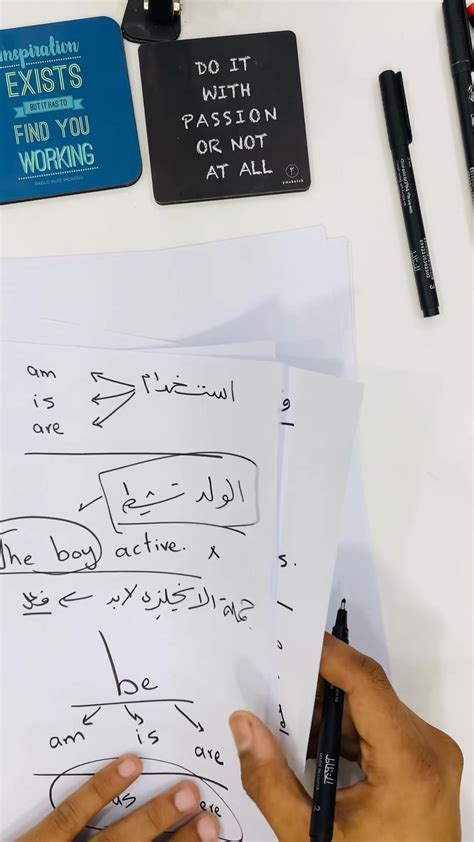 inspiration
EXISTS
BUT IT HAS TO
FIND YOU
WORKING
DO IT
WITH
PASSION
OR NOT
AT ALL
am
is
are
استخدام
و
الولد نشيط
The boy active. x
s.
جملة الانجليزه لابد ← فعل
be
am is are
as ere